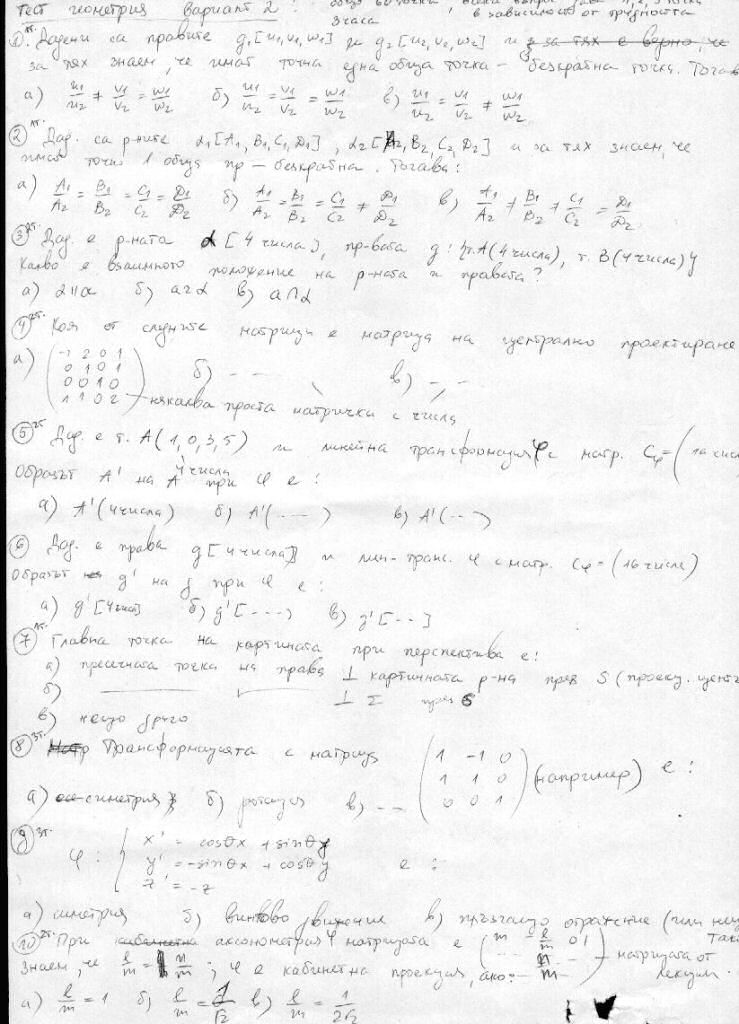 Тест геометрия Вариант 2:
3 часа в зависимост от трудността
① 1т. Дадени са правите g₁[u₁,v₁,w₁] и g₂[u₂,v₂,w₂] и за тях е верно, че
за тях знаем, че имат точна една обща точка – безкрайна точка. Тогава
а) u₁/u₂ ≠ v₁/v₂ = w₁/w₂ б) u₁/u₂ = v₁/v₂ = w₁/w₂ в) u₁/u₂ = v₁/v₂ ≠ w₁/w₂
② 1т. Дад. са р-ните α₁[A₁, B₁, C₁, D₁], α₂[A₂, B₂, C₂, D₂] и за тях знаем, че
имат точно 1 обща пр – безкрайна. Тогава:
а) A₁/A₂ = B₁/B₂ = C₁/C₂ = D₁/D₂ б) A₁/A₂ = B₁/B₂ = C₁/C₂ ≠ D₁/D₂ в) A₁/A₂ ≠ B₁/B₂ ≠ C₁/C₂ = D₁/D₂
③ 2т. Дад. е р-ната α[4 числа], пр-вата g: {т.A(4 числа), т. B(4 числа)}
Какво е взаимното положение на р-ната и правата?
а) a||α б) a z α в) a ∩ α
④ 2т. Коя от следните матрици е матрица на централно проектиране
а) (-1 2 0 1 б) - - - в) - , -
0 1 0 1
0 0 1 0
1 1 0 2) – някаква проста матричка с числа
⑤ 2т. Дад. е т. A(1,0,3,5) и линейна трансформация φ с матр. Cφ = (16 числа
4 числа
Образът A' на A при φ е:
а) A'(4 числа) б) A'(- - - -) в) A'(- - -)
⑥ Дад. е права g[4 числа] и лин-транс. φ с матр. Cφ = (16 числа)
Образът g' на g при φ е:
а) g'[4 числа] б) g'[- - - -] в) g'[- - -]
⑦ 1т. Главна точка на картината при перспектива е:
а) пресечната точка на права ⊥ картинната р-на през S (проекц. център
б) ——— ——— ⊥ Σ през S
в) нещо друго
⑧ 3т. Трансформацията с матрица (1 -1 0
1 1 0
0 0 1) (например) е:
а) симетрия б) ротация в) - -
⑨ 3т. φ: { x' = cosθx + sinθy
y' = -sinθx + cosθy е:
z' = -z
а) симетрия б) винтово движение в) плъзгащо отражение (или нещ
⑩ 2т. При аксонометрия φ матрицата е (m - l/m 0 1
знаем, че l/m = n/m; φ е кабинетна проекция, ако: n m) – матрицата от
лекции
а) l/m = 1 б) l/m = 1/√2 в) l/m = 1/2√2